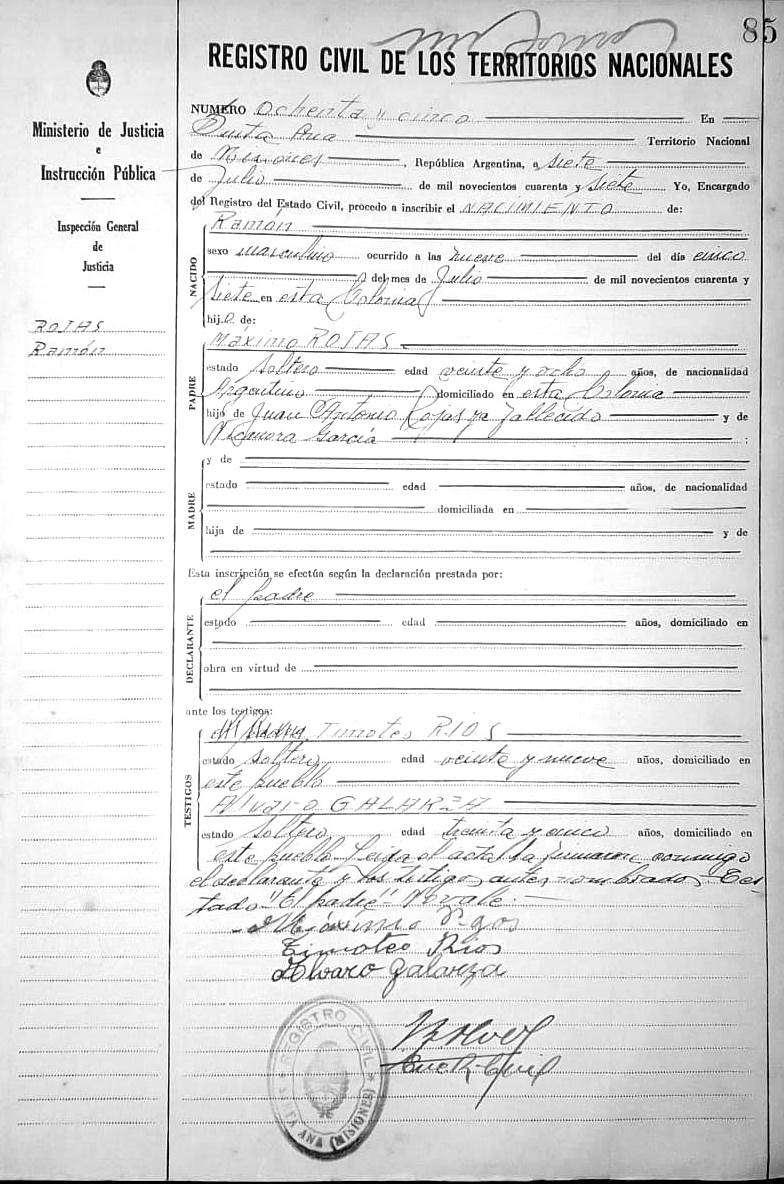 85
REGISTRO CIVIL DE LOS TERRITORIOS NACIONALES
Ministerio de Justicia
e
Instrucción Pública
Inspección General
de
Justicia
ROJAS
Ramón
NUMERO Ochenta y cinco En
Santa Ana Territorio Nacional
de Misiones, República Argentina, a siete
de Julio de mil novecientos cuarenta y siete Yo, Encargado
del Registro del Estado Civil, procedo a inscribir el NACIMIENTO de:
NACIDO
Ramón
sexo masculino ocurrido a las nueve del día cinco
del mes de Julio de mil novecientos cuarenta y
siete en esta Colonia
hijo de:
PADRE
Máximo ROJAS
estado soltero edad veinte y ocho años, de nacionalidad
Argentino domiciliado en esta Colonia
hijo de Juan Antonio Rojas ya fallecido y de
Nicanora García ;
MADRE
y de
estado edad años, de nacionalidad
domiciliada en
hija de y de
Esta inscripción se efectúa según la declaración prestada por:
DECLARANTE
el padre
estado edad años, domiciliado en
obra en virtud de
ante los testigos:
TESTIGOS
Timoteo RIOS
estado soltero edad veinte y nueve años, domiciliado en
este pueblo
Alvaro GALARZA
estado soltero edad treinta y cinco años, domiciliado en
este pueblo Leída el acta la firmaron conmigo
el declarante y los testigos antes nombrados. Tes-
tado "El padre" No vale.-
Máximo
Timoteo Rios
Alvaro Galarza
REGISTRO CIVIL
SANTA ANA (MISIONES)